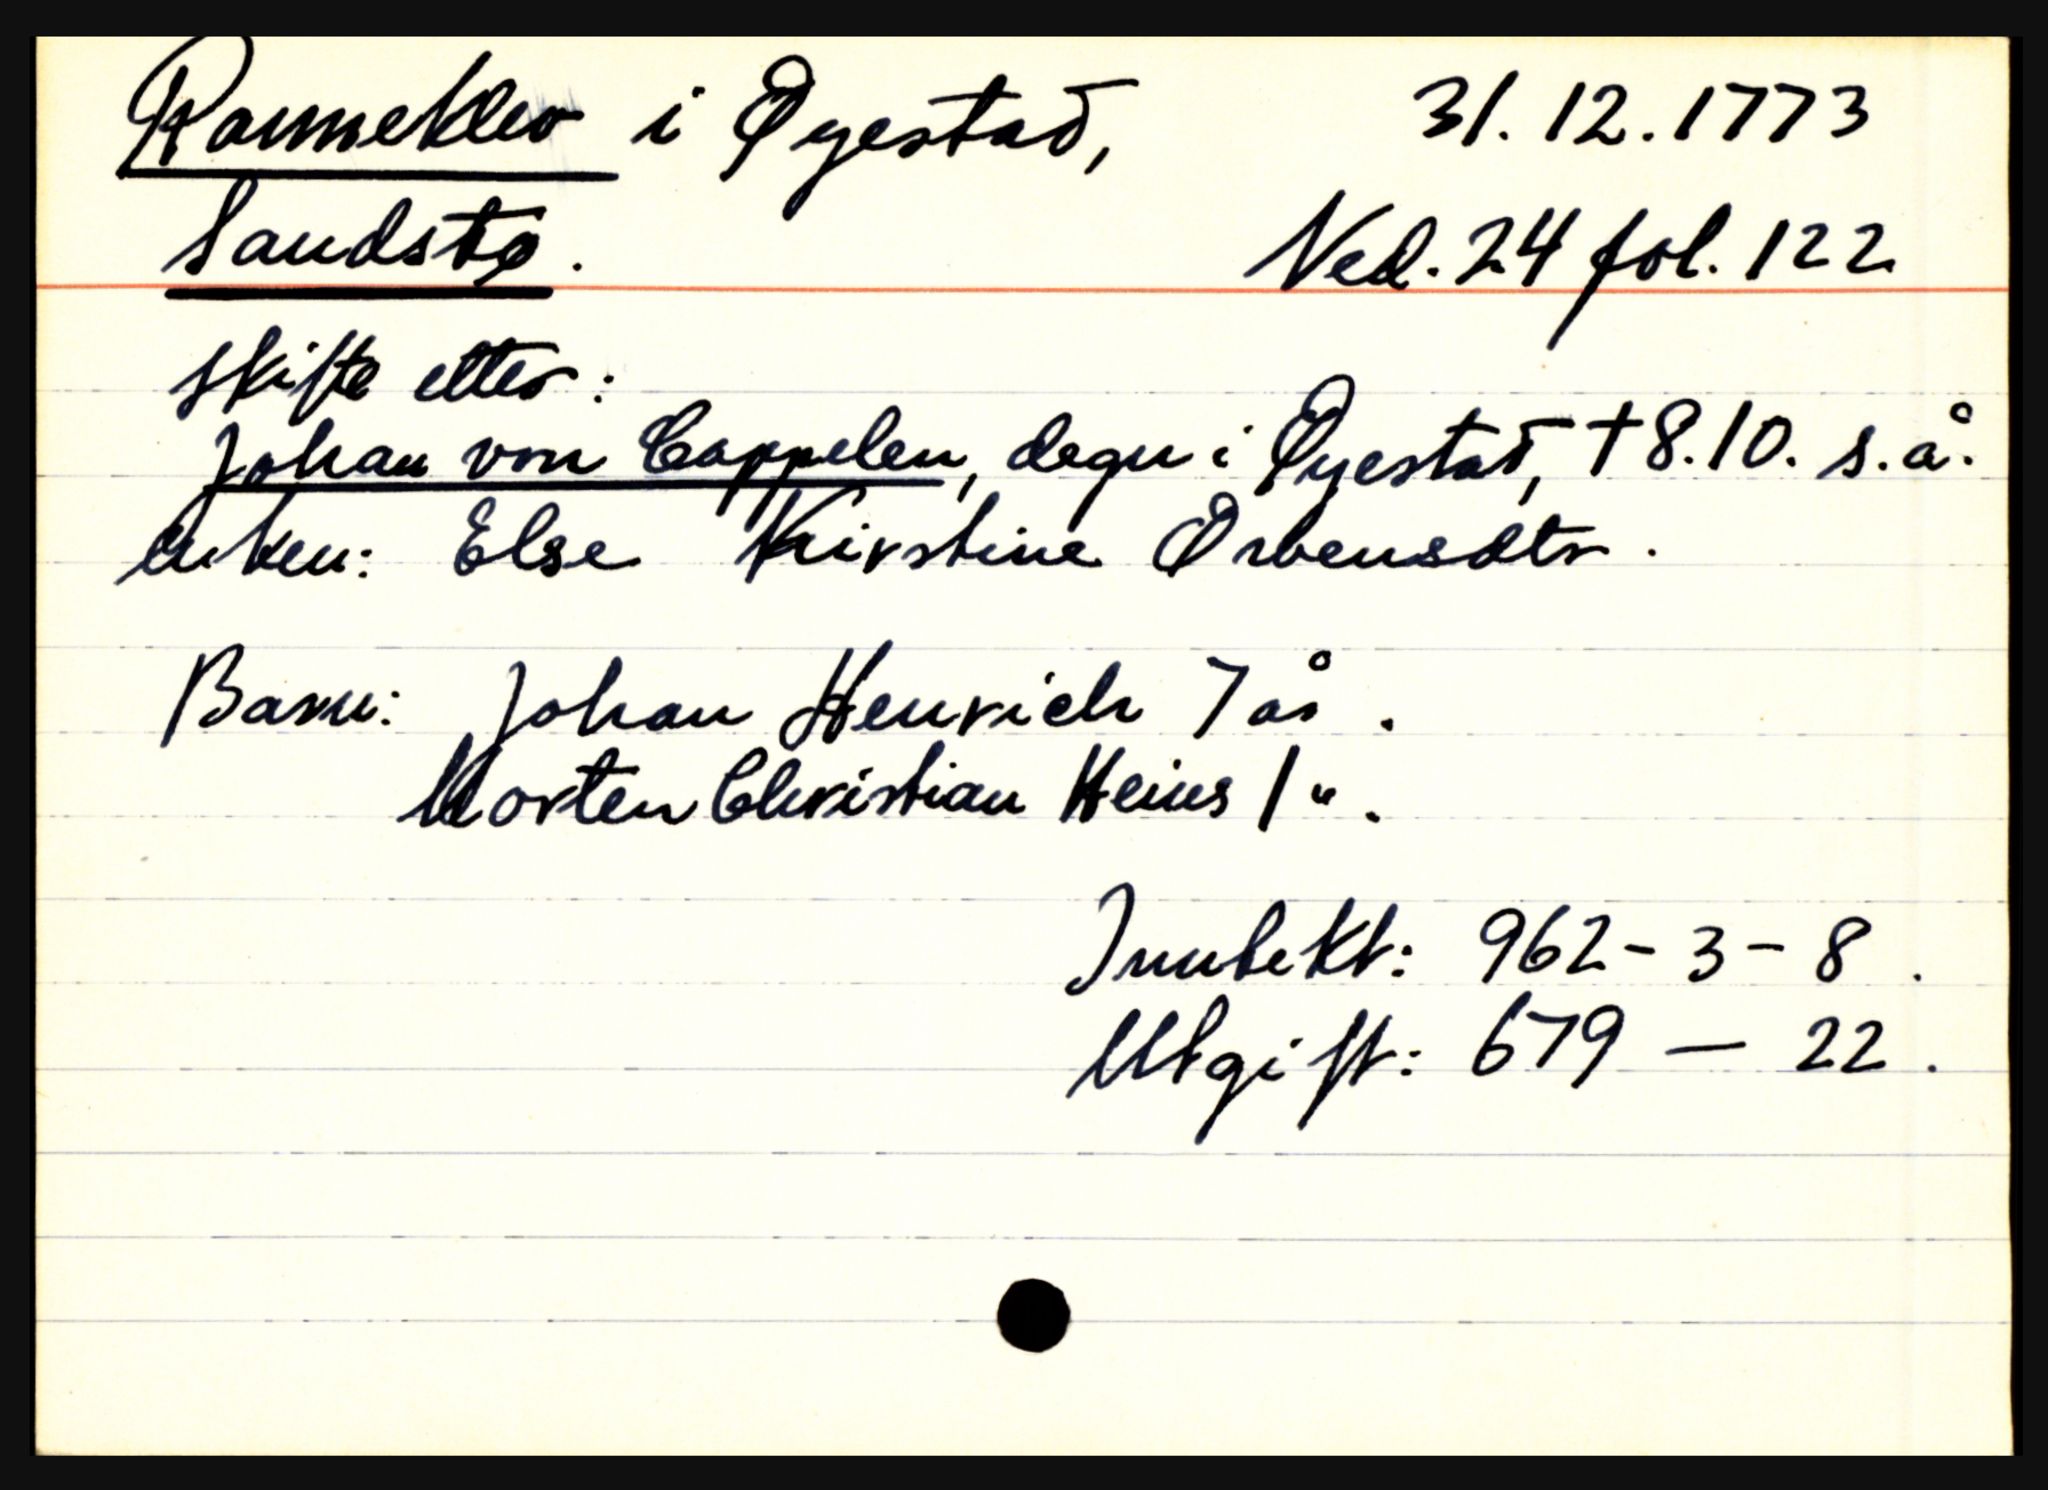 Rannekleiv i Øyestad, 31.12.1773
Sandstø. Ned. 24 fol. 122
skifte etter:
Johan von Cappelen, degn i Øyestad, † 8.10. s.å.
Enken: Else Kirstine Ørbensdtr.
Barn: Johan Henrich 7 år.
Morten Christian Heins 1 ".
Inntekt: 962 - 3 - 8.
Utgift: 679 — 22.